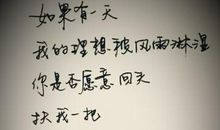 如果有一天
我的理想被风雨淋湿
你是否愿意回头
扶我一把